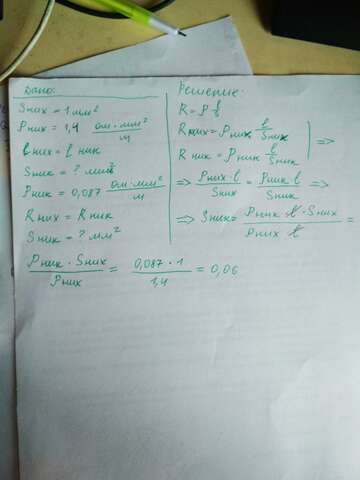 Дано:
Sних = 1 мм²
ρних = 1,4 Ом·мм²/м
lних = l ник
Sник = ? мм²
ρник = 0,087 Ом·мм²/м
Rних = Rник
Sник = ? мм²
Решение:
R = ρ l/S
Rних = ρних l/Sних
Rник = ρник l/Sник =>
=> ρних·l/Sних = ρник·l/Sник =>
=> Sник = ρник·l·Sних/ρних l =
ρник·Sних/ρних = 0,087·1/1,4 = 0,06